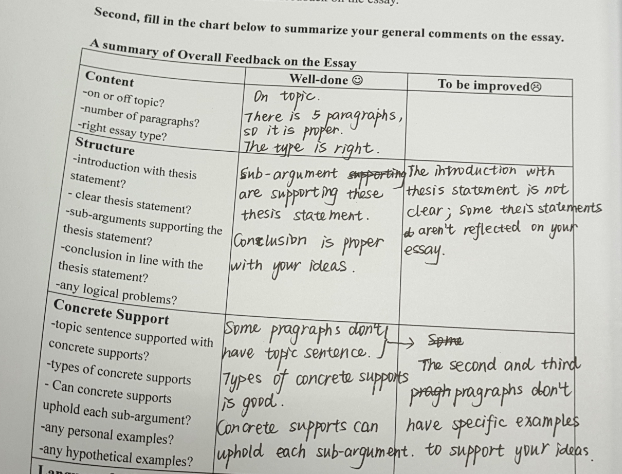 the essay.
Second, fill in the chart below to summarize your general comments on the essay.
A summary of Overall Feedback on the Essay
Well-done ☺
To be improved☹
Content
-on or off topic?
-number of paragraphs?
-right essay type?
On topic.
There is 5 paragraphs,
so it is proper.
The type is right.
Structure
-introduction with thesis
statement?
- clear thesis statement?
-sub-arguments supporting the
thesis statement?
-conclusion in line with the
thesis statement?
-any logical problems?
Sub-argument supporting
are supporting these
thesis statement.
Conclusion is proper
with your ideas.
The introduction with
thesis statement is not
clear; Some theis statements
aren't reflected on your
essay.
Concrete Support
-topic sentence supported with
concrete supports?
-types of concrete supports
- Can concrete supports
uphold each sub-argument?
-any personal examples?
-any hypothetical examples?
Some pragraphs don't
have topic sentence.
Types of concrete supports
is good.
Concrete supports can
uphold each sub-argument.
→ Some
The second and third
pragh pragraphs don't
have specific examples
to support your ideas.